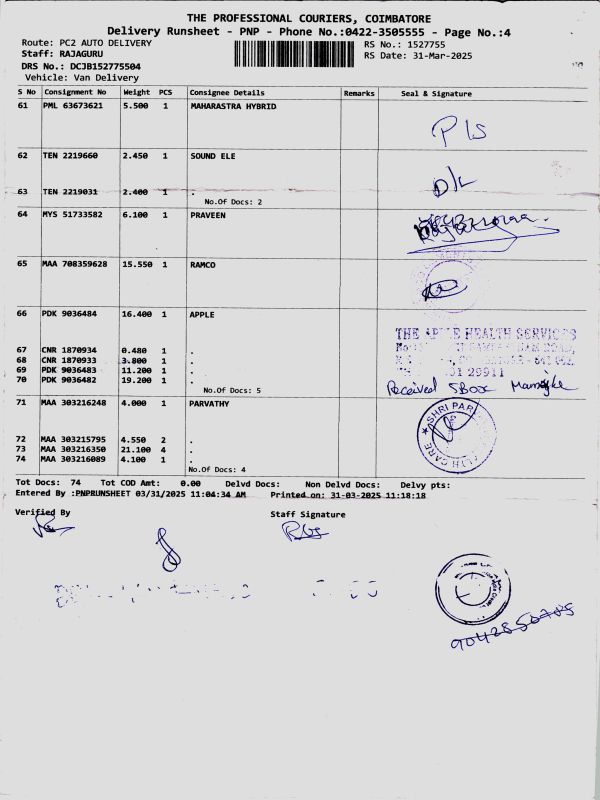 THE PROFESSIONAL COURIERS, COIMBATORE
Delivery Runsheet - PNP - Phone No.:0422-3505555 - Page No.:4
Route: PC2 AUTO DELIVERY
RS No.: 1527755
Staff: RAJAGURU
RS Date: 31-Mar-2025
DRS No.: DCJB152775504
Vehicle: Van Delivery
S No Consignment No Weight PCS Consignee Details Remarks Seal & Signature
61 PML 63673621 5.500 1 MAHARASTRA HYBRID
P/S
62 TEN 2219660 2.450 1 SOUND ELE
D/L
63 TEN 2219031 2.400 1 .
No.Of Docs: 2
64 MYS 51733582 6.100 1 PRAVEEN
65 MAA 708359628 15.550 1 RAMCO
66 PDK 9036484 16.400 1 APPLE
THE APPLE HEALTH SERVICES
67 CNR 1870934 0.480 1 .
68 CNR 1870933 3.800 1 .
69 PDK 9036483 11.200 1 .
70 PDK 9036482 19.200 1 .
No.Of Docs: 5
Received 5Box
71 MAA 303216248 4.000 1 PARVATHY
SHRI PAR
LTH CARE
72 MAA 303215795 4.550 2 .
73 MAA 303216350 21.100 4 .
74 MAA 303216089 4.100 1 .
No.Of Docs: 4
Tot Docs: 74 Tot COD Amt: 0.00 Delvd Docs: Non Delvd Docs: Delvy pts:
Entered By :PNPRUNSHEET 03/31/2025 11:04:34 AM Printed on: 31-03-2025 11:18:18
Verified By Staff Signature